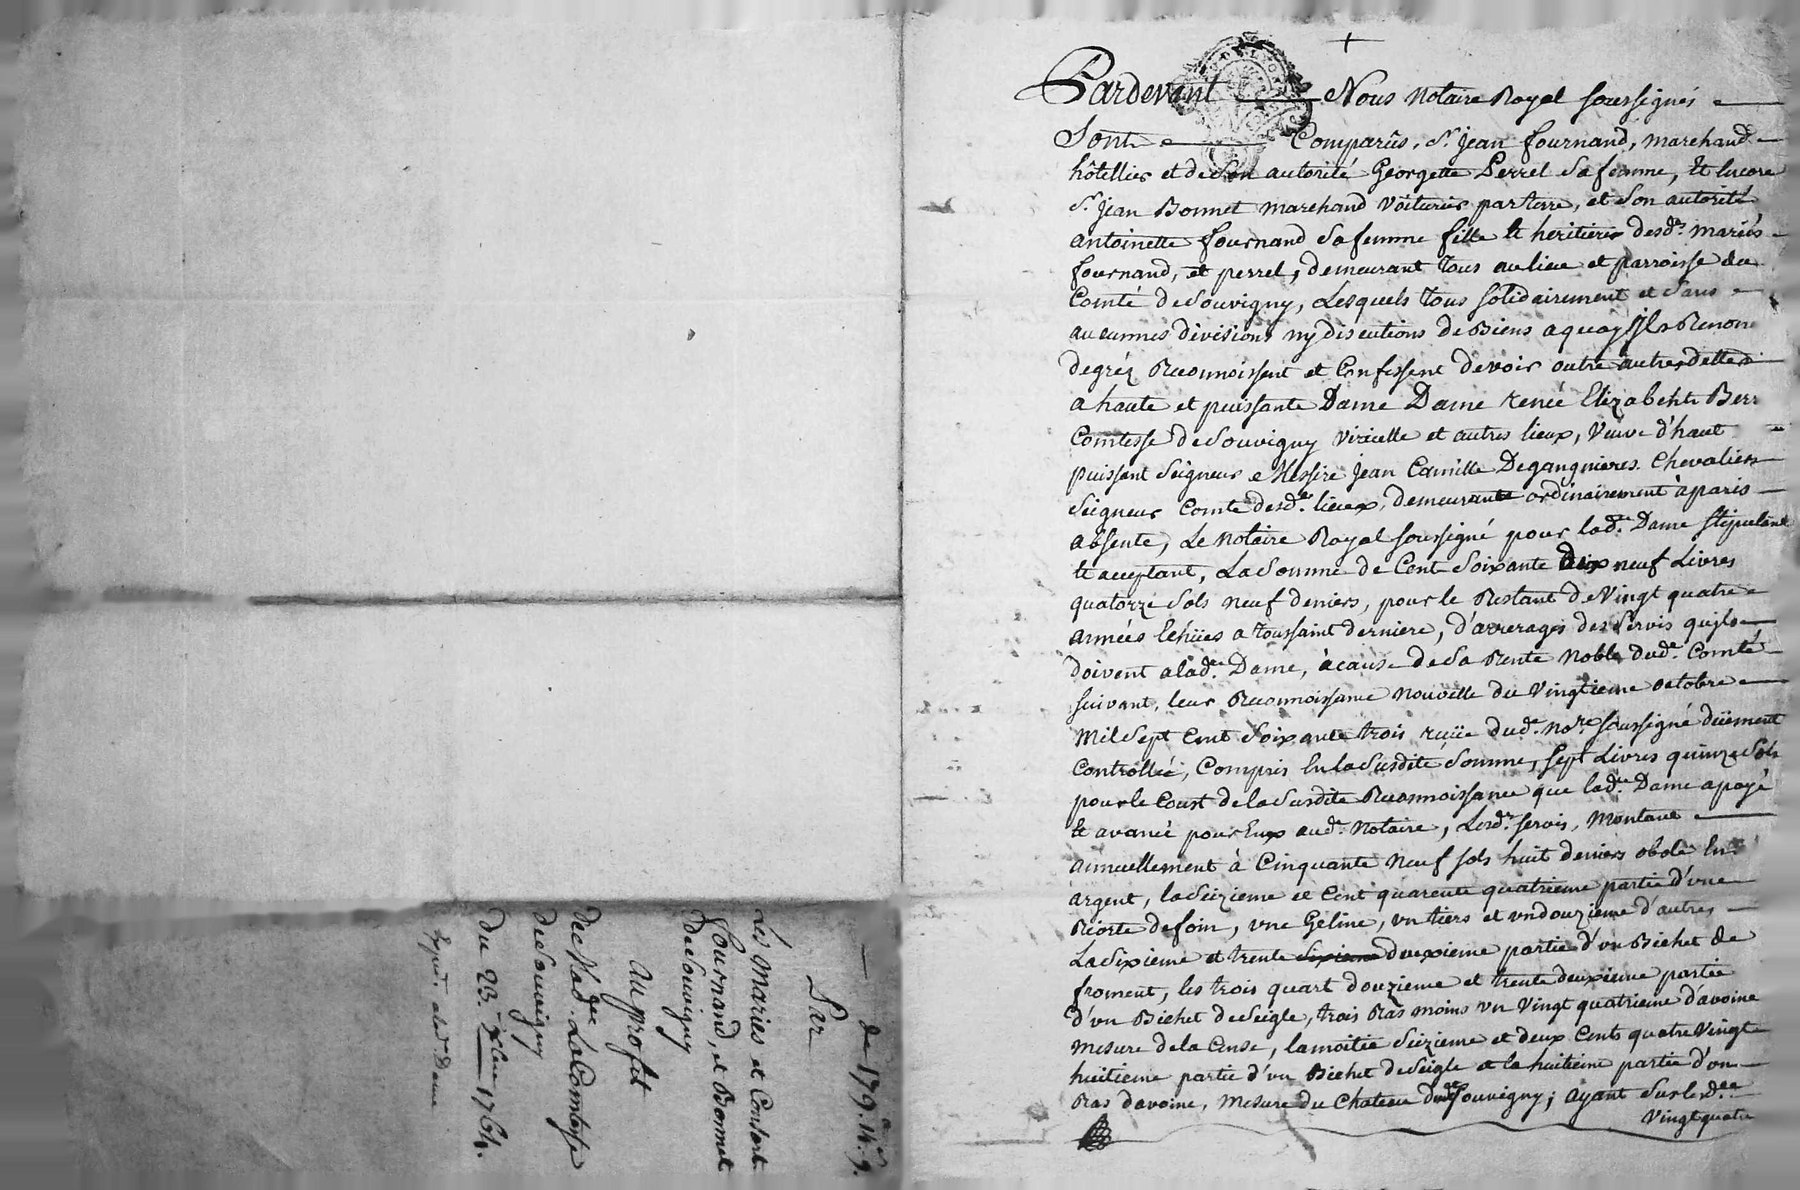 Pardevant Nous Notaire Royal soussignés
Sont Comparûs, Sr. Jean fournand, marchand
hôtellier et de Son autorité Georgette Perrel Sa femme, Et Encore
Sr. Jean Bonnet marchand Voiturier par terre, et Son autorité
antoinette fournand Sa femme fille et heritiere desds. mariés
fournand, et perrel, demeurant tous au lieu et parroisse du
Comté de Souvigny, Lesquels tous solidairement et Sans
aucunnes divisions ny discutions de Biens a quoy Ils Renon
de gréz Reconnoissent et Confessent devoir outre autres dettes
a haute et puissante Dame Dame renée Elizabeht Berr
Comtesse de Souvigny Viricelle et autres lieux, Veuve d'haut
puissant Seigneur Messire Jean Camille Deganguieres Chevalier
Seigneur Comte desds. lieux, demeurante ordinairement à paris
absente, Le Notaire Royal soussigné pour lade. Dame stipulant
et acceptant, La Somme de Cent Soixante dix neuf Livres
quatorze Sols neuf deniers, pour le Restant de Vingt quatre
années Echües a toussaint derniere, d'arrerages des Servis quils
doivent a lade. Dame, à cause de Sa Rente Noble dudt. Comté
suivant, leur Reconnoissance nouvelle du Vingtieme octobre
Mil Sept Cent Soixante trois reçüe dudt. nore. soussigné düement
Controllée, Compris En la Susdite Somme, sept Livres quinze Sols
pour le Coust de la Susdite Reconnoissance que lade. Dame a payé
Et avancé pour Eux audt. Notaire, Lesds. servis, Montant
annuellement à Cinquante Neuf sols huit deniers obole En
argent, la Seizieme et Cent quarente quatrieme partie d'une
Riorte de foin, une Geline, un tiers et un douzieme d'autres
La Sixieme et trente deuxieme partie d'un Bichet de
froment, les trois quart douzieme et trente deuxieme partie
d'un Bichet de Seigle, trois Ras moins un Vingt quatrieme d'avoine
mesure de la Cense, la moitié Seizieme et deux Cents quatre Vingt
huitieme partie d'un Bichet de Seigle et la huitieme partie d'un
Ras d'avoine, mesure du Chateau dudt Souvigny; ayant Sur
Vingt quatre
de 179. 14. 9.
Sur
Les Maries et Consort
Fournand, et Bonnet
de Souvigny
Au profit
de Made. La Comtesse
de Souvigny
du 23. Xbre 1764.
Expedé. a lade. Dame